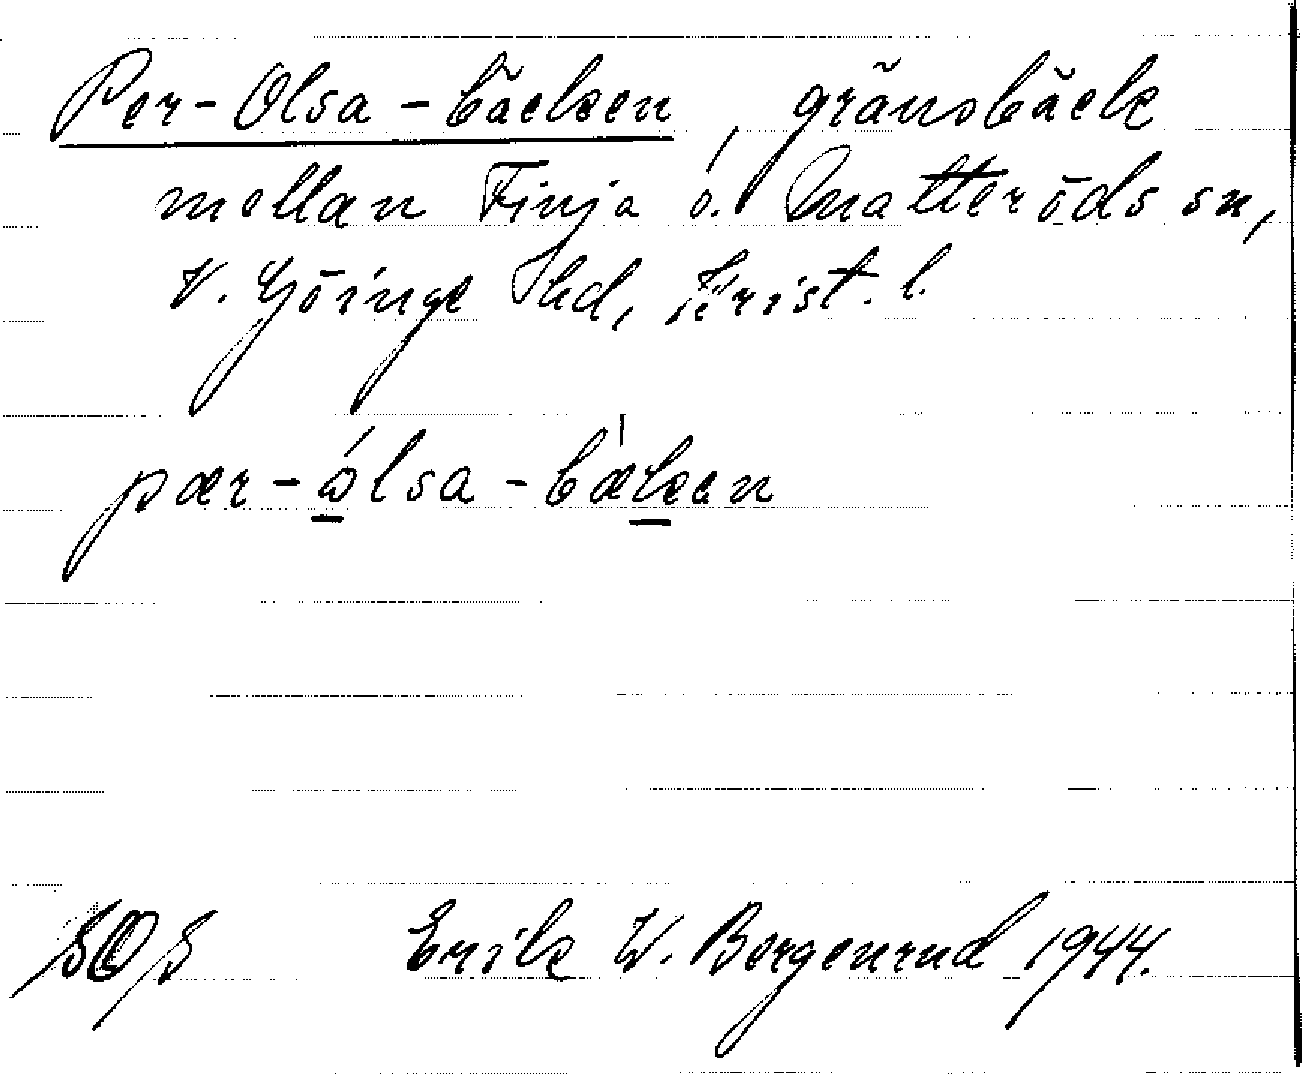 Per-Olsa-bäcken, gränsbäck
mellan Finja o. Matteröds sn,
V. Göinge hd, Krist. l.
pær-ólsa-bækan
Erik W. Borgenrud 1944.